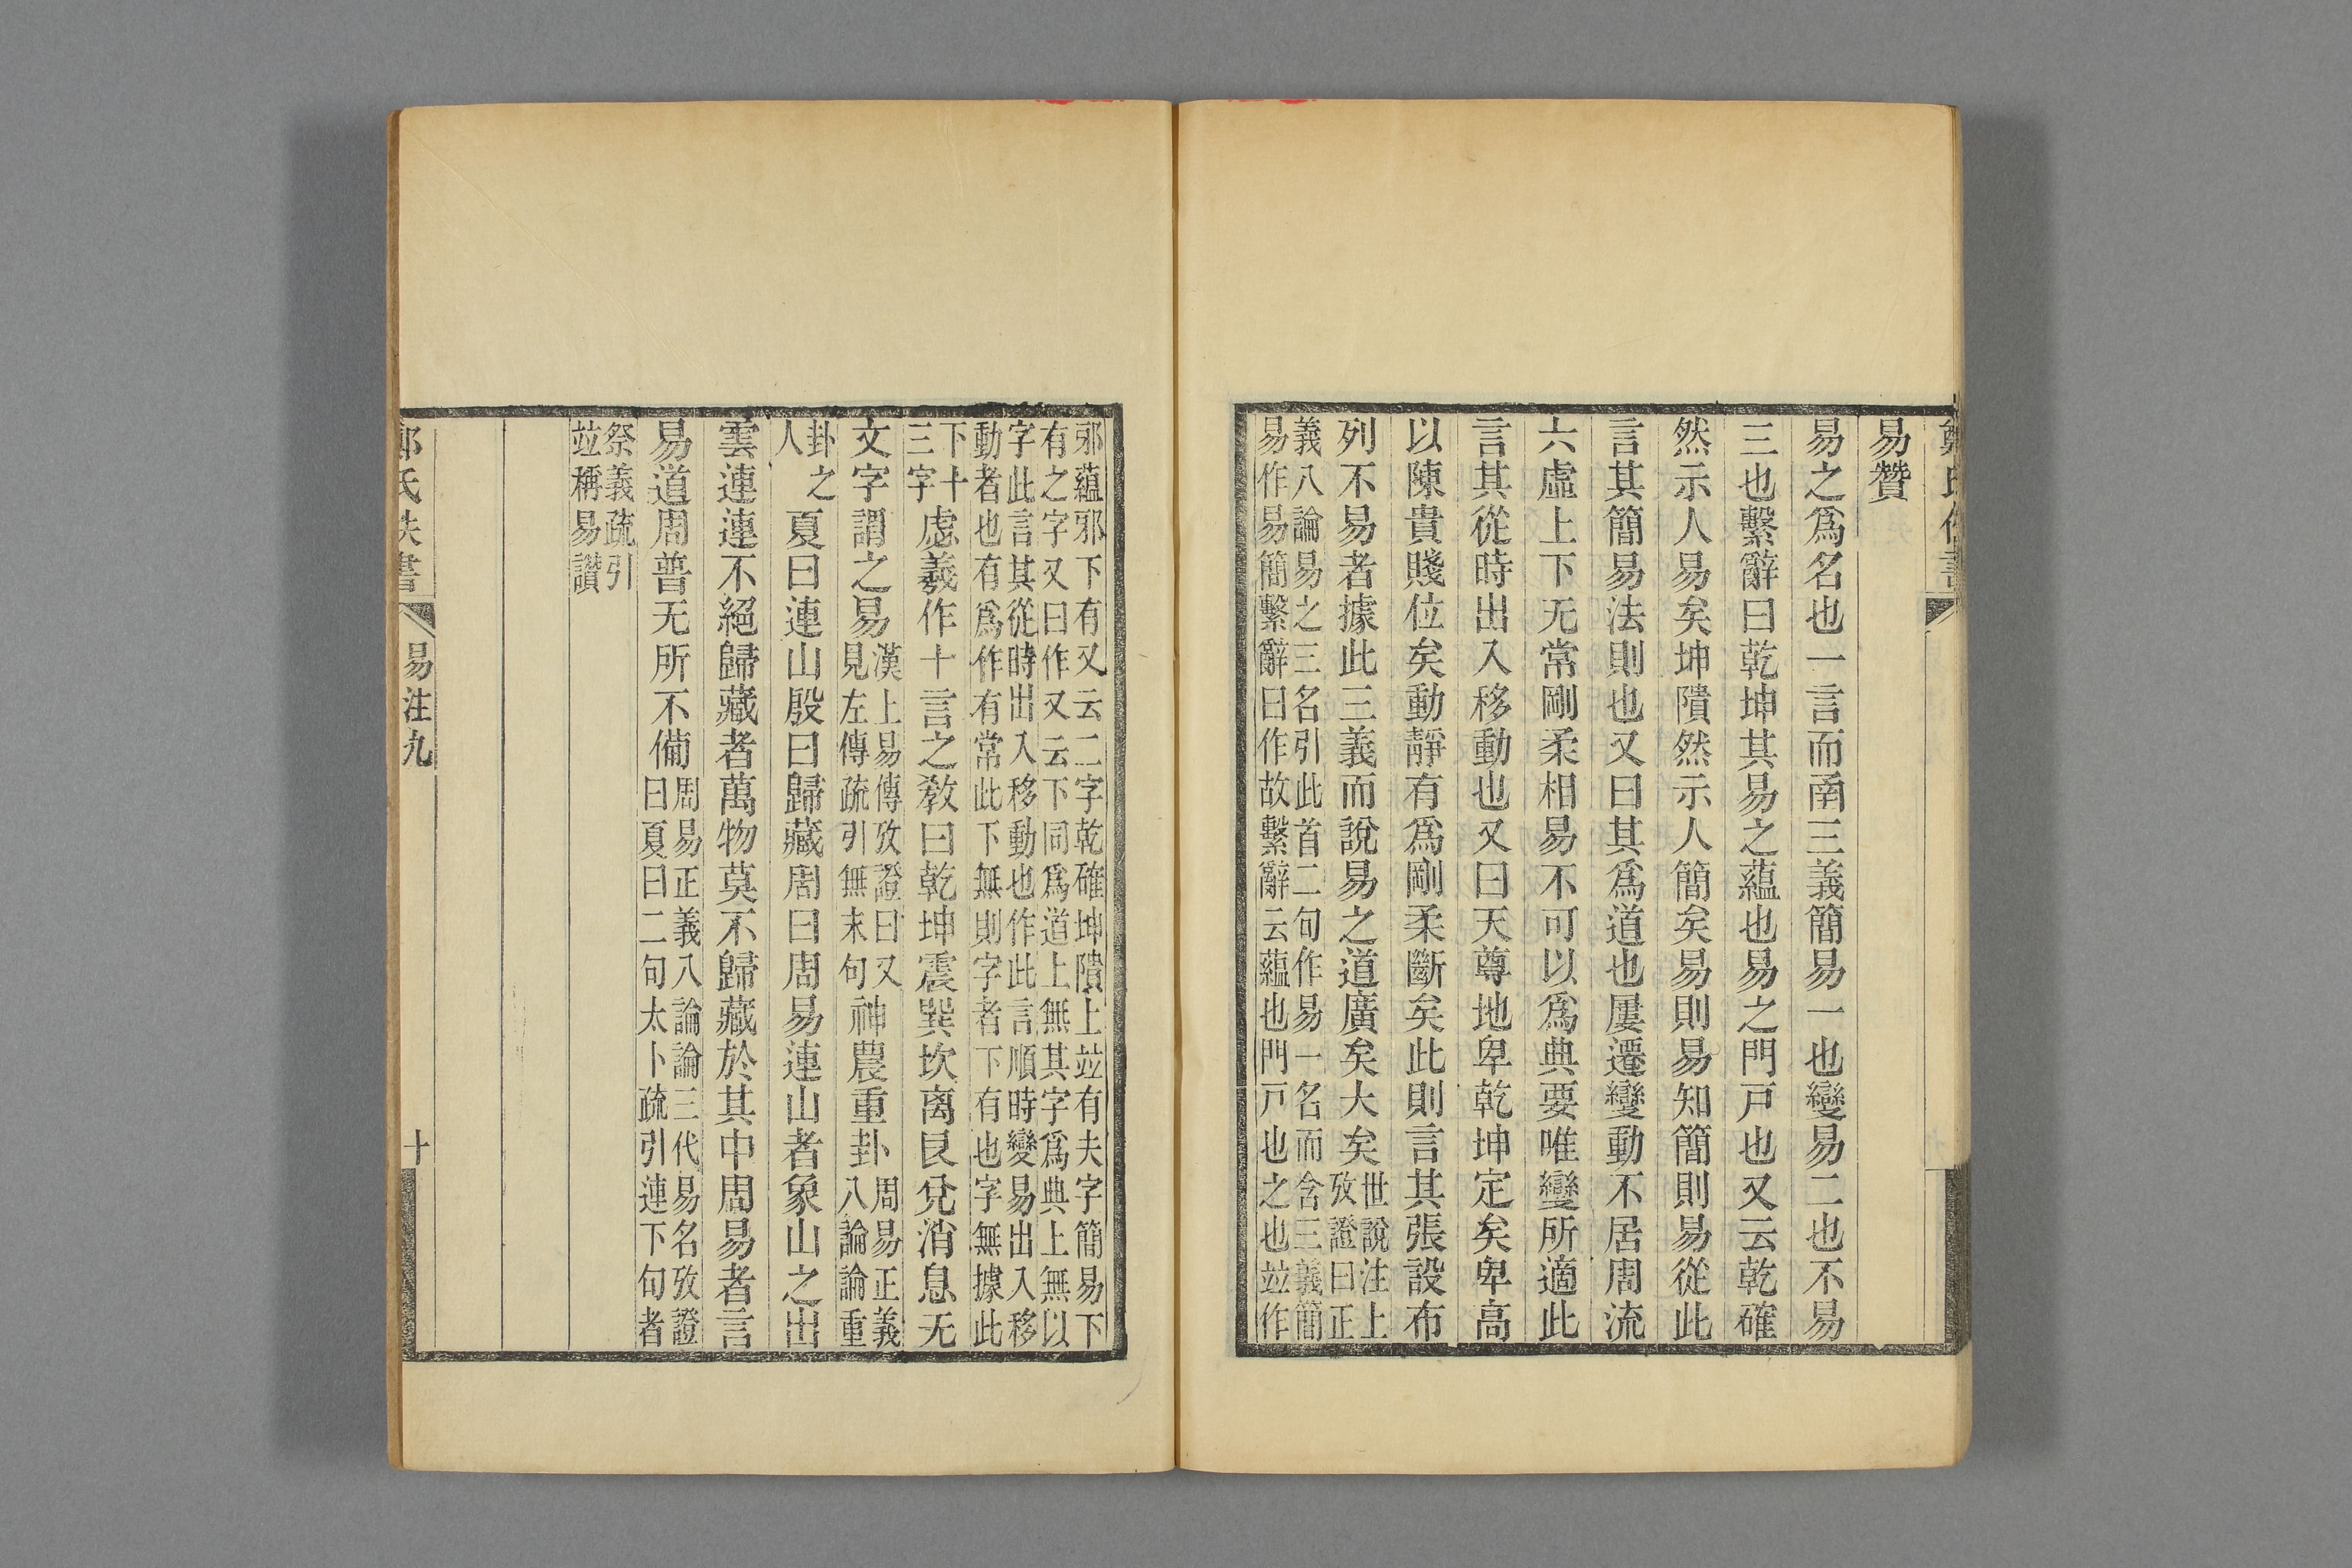 易贊
易之爲名也一言而圅三義簡易一也變易二也不易
三也繫辭曰乾坤其易之蘊也易之門戸也又云乾確
然示人易矣坤隤然示人簡矣易則易知簡則易從此
言其簡易法則也又曰其爲道也屢遷變動不居周流
六虛上下无常剛柔相易不可以爲典要唯變所適此
言其從時出入移動也又曰天尊地卑乾坤定矣卑高
以陳貴賤位矣動靜有爲剛柔斷矣此則言其張設布
列不易者據此三義而說易之道廣矣大矣
世說注上
攷證曰正
義八論易之三名引此首二句作易一名而含三義簡
易作易簡繫辭曰作故繫辭云蘊也門戸也之也竝作
邪蘊邪下有又云二字乾確坤隤上竝有夫字簡易下
有之字又曰作又云下同爲道上無其字爲典上無以
字此言其從時出入移動也作此言順時變易出入移
動者也有爲作有常此下無則字者下有也字無據此
下十
三字
虙羲作十言之敎曰乾坤震巽坎离艮兌消息无
文字謂之易
漢上易傳攷證曰又
見左傳疏引無末句
神農重卦
周易正義
八論論重
卦之
人
夏曰連山殷曰歸藏周曰周易連山者象山之出
雲連連不絕歸藏者萬物莫不歸藏於其中周易者言
易道周普无所不僃
周易正義八論論三代易名攷證
曰夏曰二句太卜疏引連下句者
祭義疏引
竝稱易讃
鄭氏佚書
易注九
十